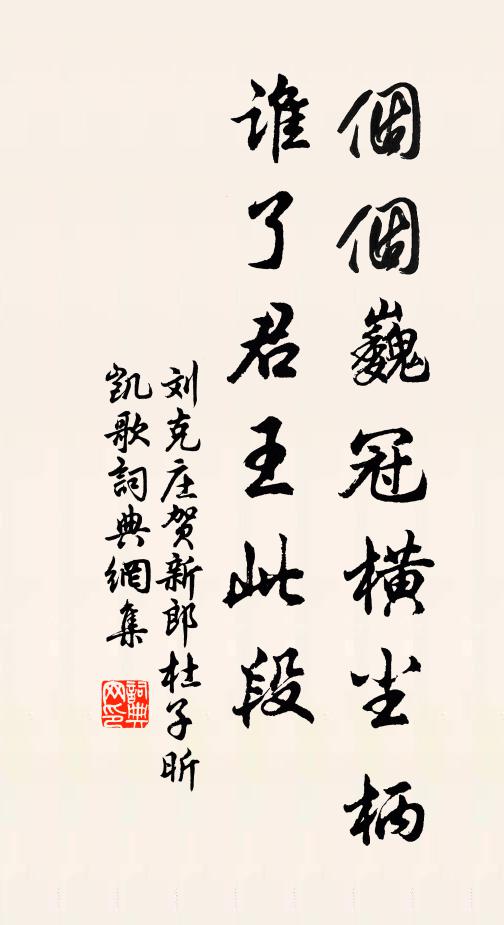 個個巍冠橫尘柄
谁了君王此段
刘克庄贺新郎杜子昕
凯歌詞典網集
詞典网印